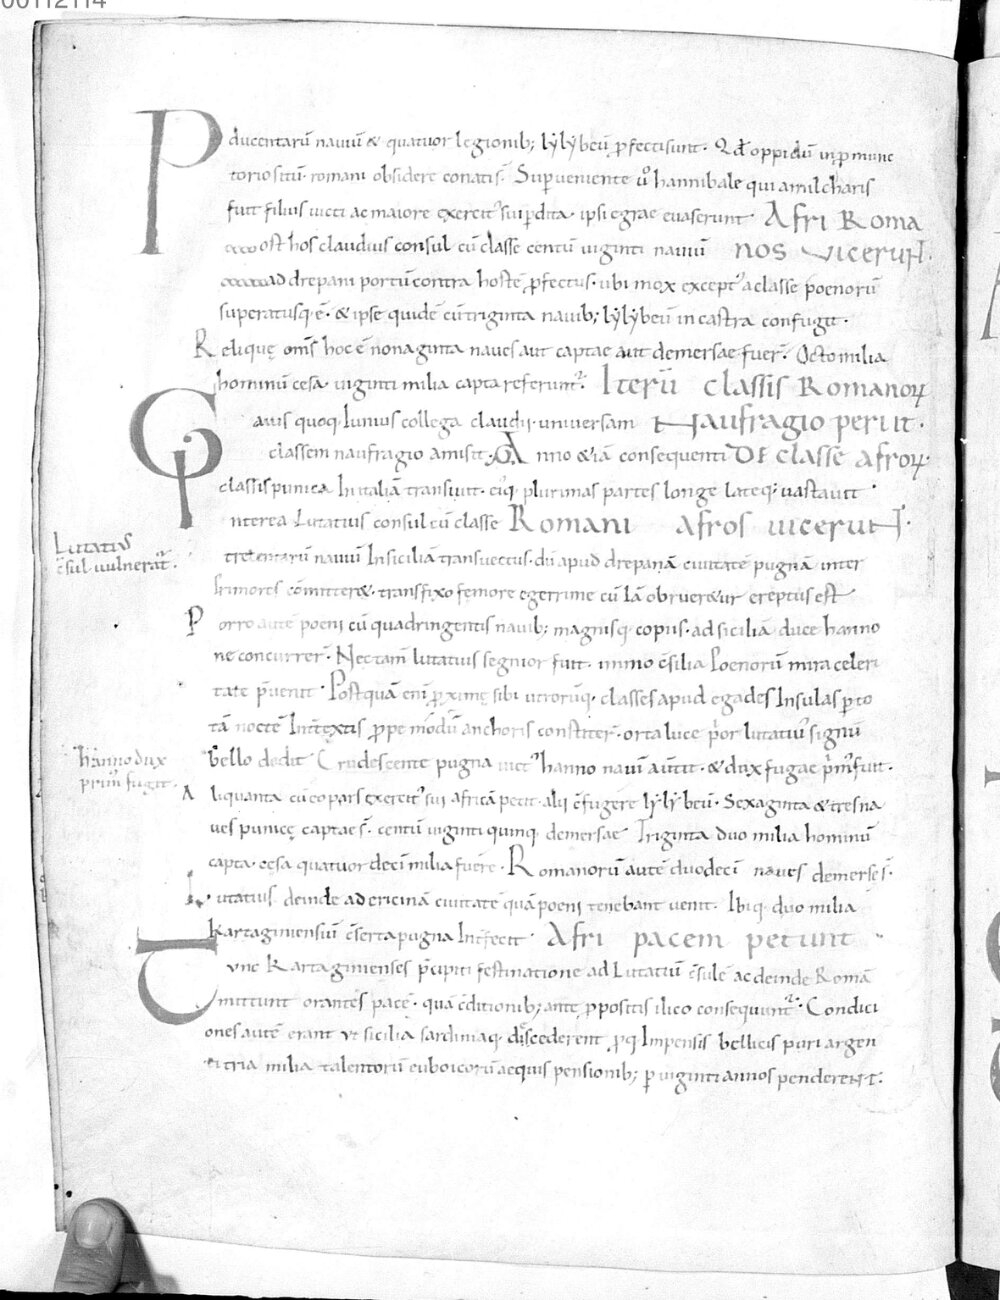 00112114
P ducentarū nauiū & quatuor legionib; lylybeū ꝓfectisunt. Qd̄ oppidū inꝓmunc
torio sitū. romani obsidere conatis̄. Suꝑueniente ū hannibale qui amilcharis
fuit filius uicti ac maiore exercit᾽ sui ꝑdita. ipsi egrae euaserunt. Afri Roma
ost hos claudius consul cū classe centū uiginti nauiū nos viceruN̄.
ad drepani portū contra hostē ꝓfectus. ubi mox except᾽ a classe poenorū
superatusq; ē. & ipse quidē cū triginta nauib; lylybeū in castra confugit.
Relique om̄s hoc ē nonaginta naues aut captae aut demersae fuer̄. Octo milia
hominū cesa uiginti milia capta referunt᾽. Iterū classis Romanoꝝ
Gaius quoq; Iunius collega claudii. uniuersam Naufragio periit.
classem naufragio amisit. Anno &iā consequenti De classe afroꝝ.
classis punica In italiā transiuit. eiq; plurimas partes longe lateq; uastauit.
nterea Lutatius consul cū classe Romani afros uicerut̄.
Lutatius
c̄sul uulnerat᾽.
trecentarū nauiū In siciliā transuectus. dū apud drepanā ciuitatē pugnā inter
primores cōmitter&. transfixo femore egerrime cū Iā obruer&ur ereptus est
Porro autē poeni cū quadringentis nauib; magnisq; copiis. ad siciliā duce hanno
ne concurrer̄. Nec tam̄ lutatius segnior fuit. immo c̄silia Poenorū mira celeri
tate p̄uenit. Postquā eni ꝓxime sibi utrorūq; classes apud egades Insulas ꝑ to
tā noctē Int̄textis prope modū anchoris constiter̄. orta luce p̄or lutatiu᾽ signū
bello dedit Crudescente pugna uict᾽ hanno nauī auertit. & dux fugae p̄m᾽ fuit.
hanno dux
prim᾽ fugit.
Aliquanta cū eo pars exercit᾽ sui africā petit. alii c̄fugere lylybeū. Sexaginta & tres na
ues punice captae s̄. centū uiginti quinq; demersae Triginta duo milia hominū
capta. cesa quatuordecī milia fuēre. Romanorū autē duodecī naues demerse s̄.
Lutatius deinde ad ericinā ciuitatē quā poeni tenebant uenit. Ibiq; duo milia
kartaginiensiū c̄serta pugna Int̄fecit. Afri pacem petunt
Tunc Kartaginienses p̄cipiti festinatione ad Lutatiū c̄sulē ac deinde Romā
mittunt orantes pacē. quā c̄ditionib; ante ꝓpositis ilico consequunt᾽. Condici
ones autē erant ut sicilia sardiniaq; discederent ꝓq; Impensis bellicis puri argen
ti tria milia talentorū euboicorū aequis pensionib; ꝑ uiginti annos penderent.